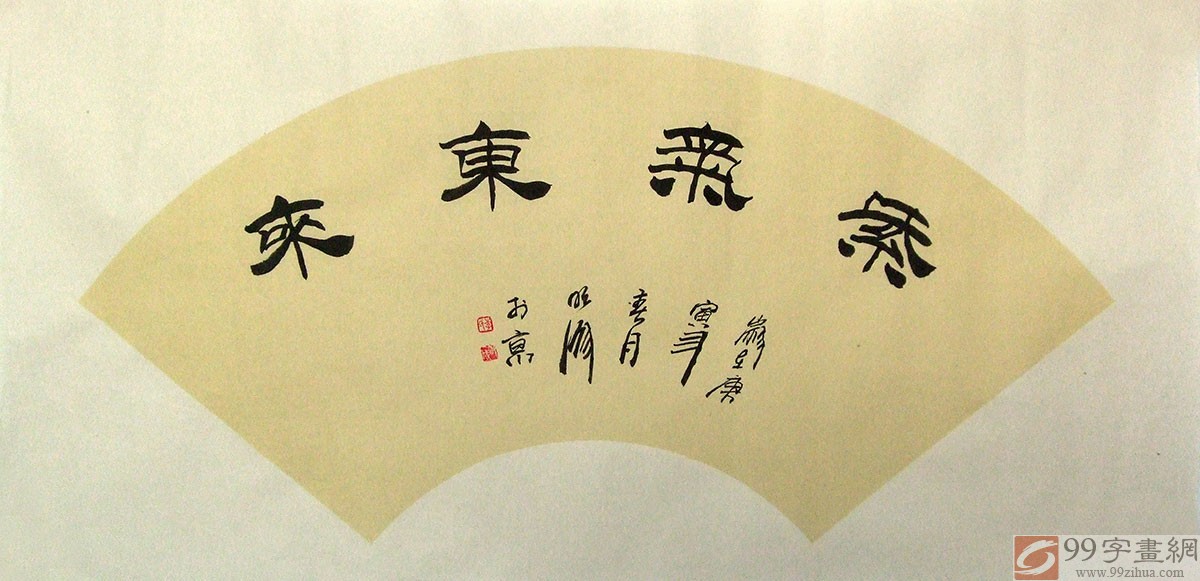 紫氣東來
歲在庚
寅年
春月
於京
99字畫網
www.99zihua.com